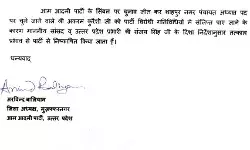 आम आदमी पार्टी के सिंबल पर चुनाव जीत कर शाहपुर नगर पंचायत अध्यक्ष पद
पर चुने जाने वाले श्री अकरम कुरैशी को पार्टी विरोधी गतिविधियों में संलिप्त पाए जाने के
कारण माननीय सांसद व उत्तर प्रदेश प्रभारी श्री संजय सिंह जी के दिशा निर्देशानुसार तत्काल
प्रभाव से पार्टी से निष्कासित किया जाता हैं।
धन्यवाद
अरविन्द बालियान
जिला अध्यक्ष, मुजफ्फरनगर
आम आदमी पार्टी, उत्तर प्रदेश